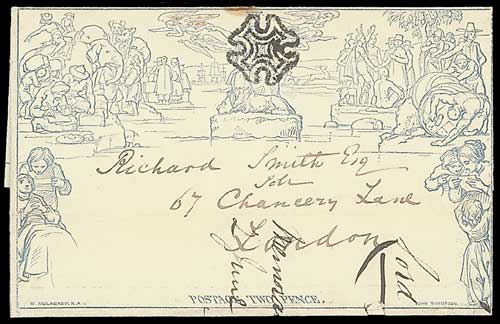 Richard Smith Esq
67 Chancery Lane
London
POSTAGE TWO PENCE.
W. MULREADY. R.A.
JOHN THOMPSON.